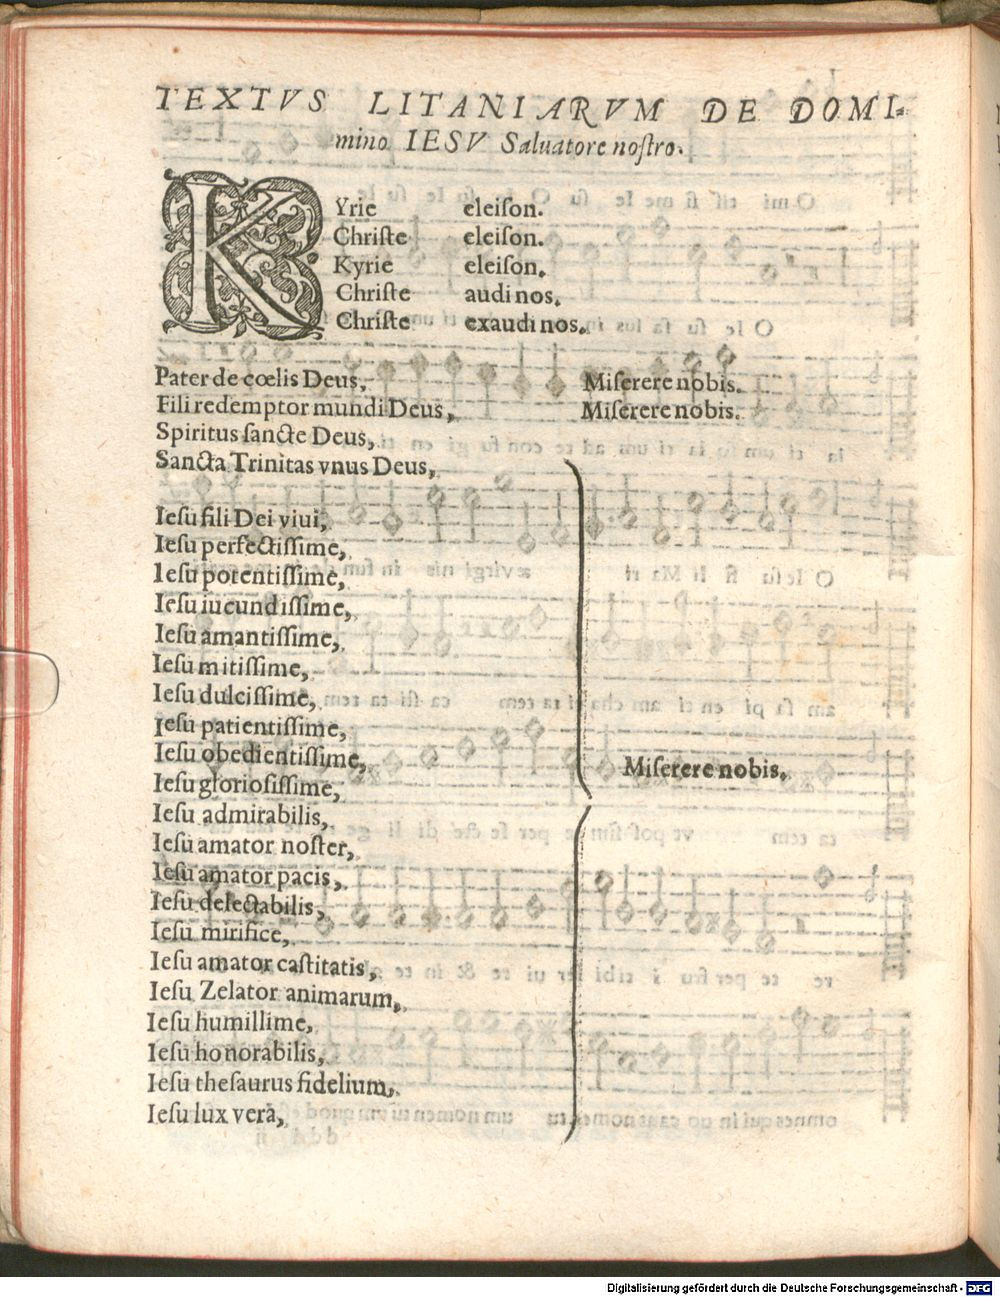 TEXTVS LITANIARVM DE DOMI=
mino IESV Saluatore noſtro.
KYrie eleiſon.
Chriſte eleiſon.
Kyrie eleiſon.
Chriſte audi nos.
Chriſte exaudi nos.
Pater de cœlis Deus, Miſerere nobis.
Fili redemptor mundi Deus, Miſerere nobis.
Spiritus ſancte Deus,
Sancta Trinitas vnus Deus,
Ieſu fili Dei viui,
Ieſu perfectiſſime,
Ieſu potentiſſime,
Ieſu iucundiſſime,
Ieſu amantiſſime,
Ieſu mitiſſime,
Ieſu dulciſſime,
Ieſu patientiſſime,
Ieſu obedientiſſime,
Miſerere nobis.
Ieſu glorioſiſſime,
Ieſu admirabilis,
Ieſu amator noſter,
Ieſu amator pacis,
Ieſu delectabilis,
Ieſu mirifice,
Ieſu amator caſtitatis,
Ieſu Zelator animarum,
Ieſu humillime,
Ieſu honorabilis,
Ieſu theſaurus fidelium,
Ieſu lux vera,
Digitalisierung gefördert durch die Deutsche Forschungsgemeinschaft - DFG